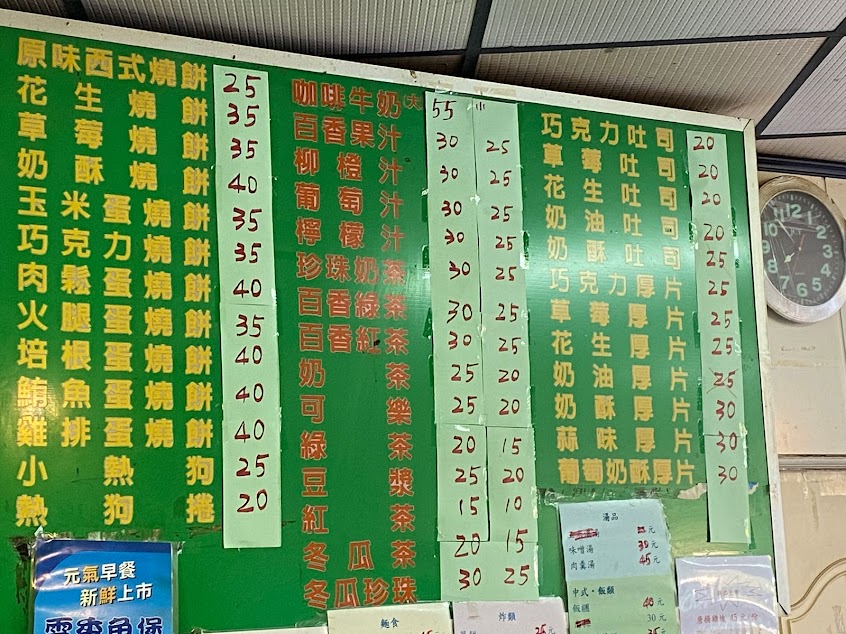 原味西式燒餅 25
花生燒餅 35
草莓燒餅 35
奶酥燒餅 40
玉米蛋燒餅 35
巧克力蛋燒餅 35
肉鬆蛋燒餅 40
火腿蛋燒餅 35
培根蛋燒餅 40
鮪魚蛋燒餅 40
雞排蛋燒餅 40
小熱狗 25
熱狗捲 20
元氣早餐
新鮮上市
大 小
咖啡牛奶 55
百香果汁 30 25
柳橙汁 30 25
葡萄汁 30 25
檸檬汁 30 25
珍珠奶茶 30 25
百香綠茶 30 25
百香紅茶 30 25
奶茶 25 20
可樂 25 20
綠茶 20 15
豆漿 25 20
紅茶 15 10
冬瓜茶 20 15
冬瓜珍珠 30 25
麵食
炸類
25元
巧克力吐司 20
草莓吐司 20
花生吐司 20
奶油吐司 20
奶酥吐司 25
巧克力厚片 25
草莓厚片 25
花生厚片 25
奶油厚片 25
奶酥厚片 30
蒜味厚片 30
葡萄奶酥厚片 30
湯品
味噌湯 30元
肉羹湯 45元
中式‧飯類
飯糰 40元
30元
35元
12 1 2 3 4 5 6 7 8 9 10 11